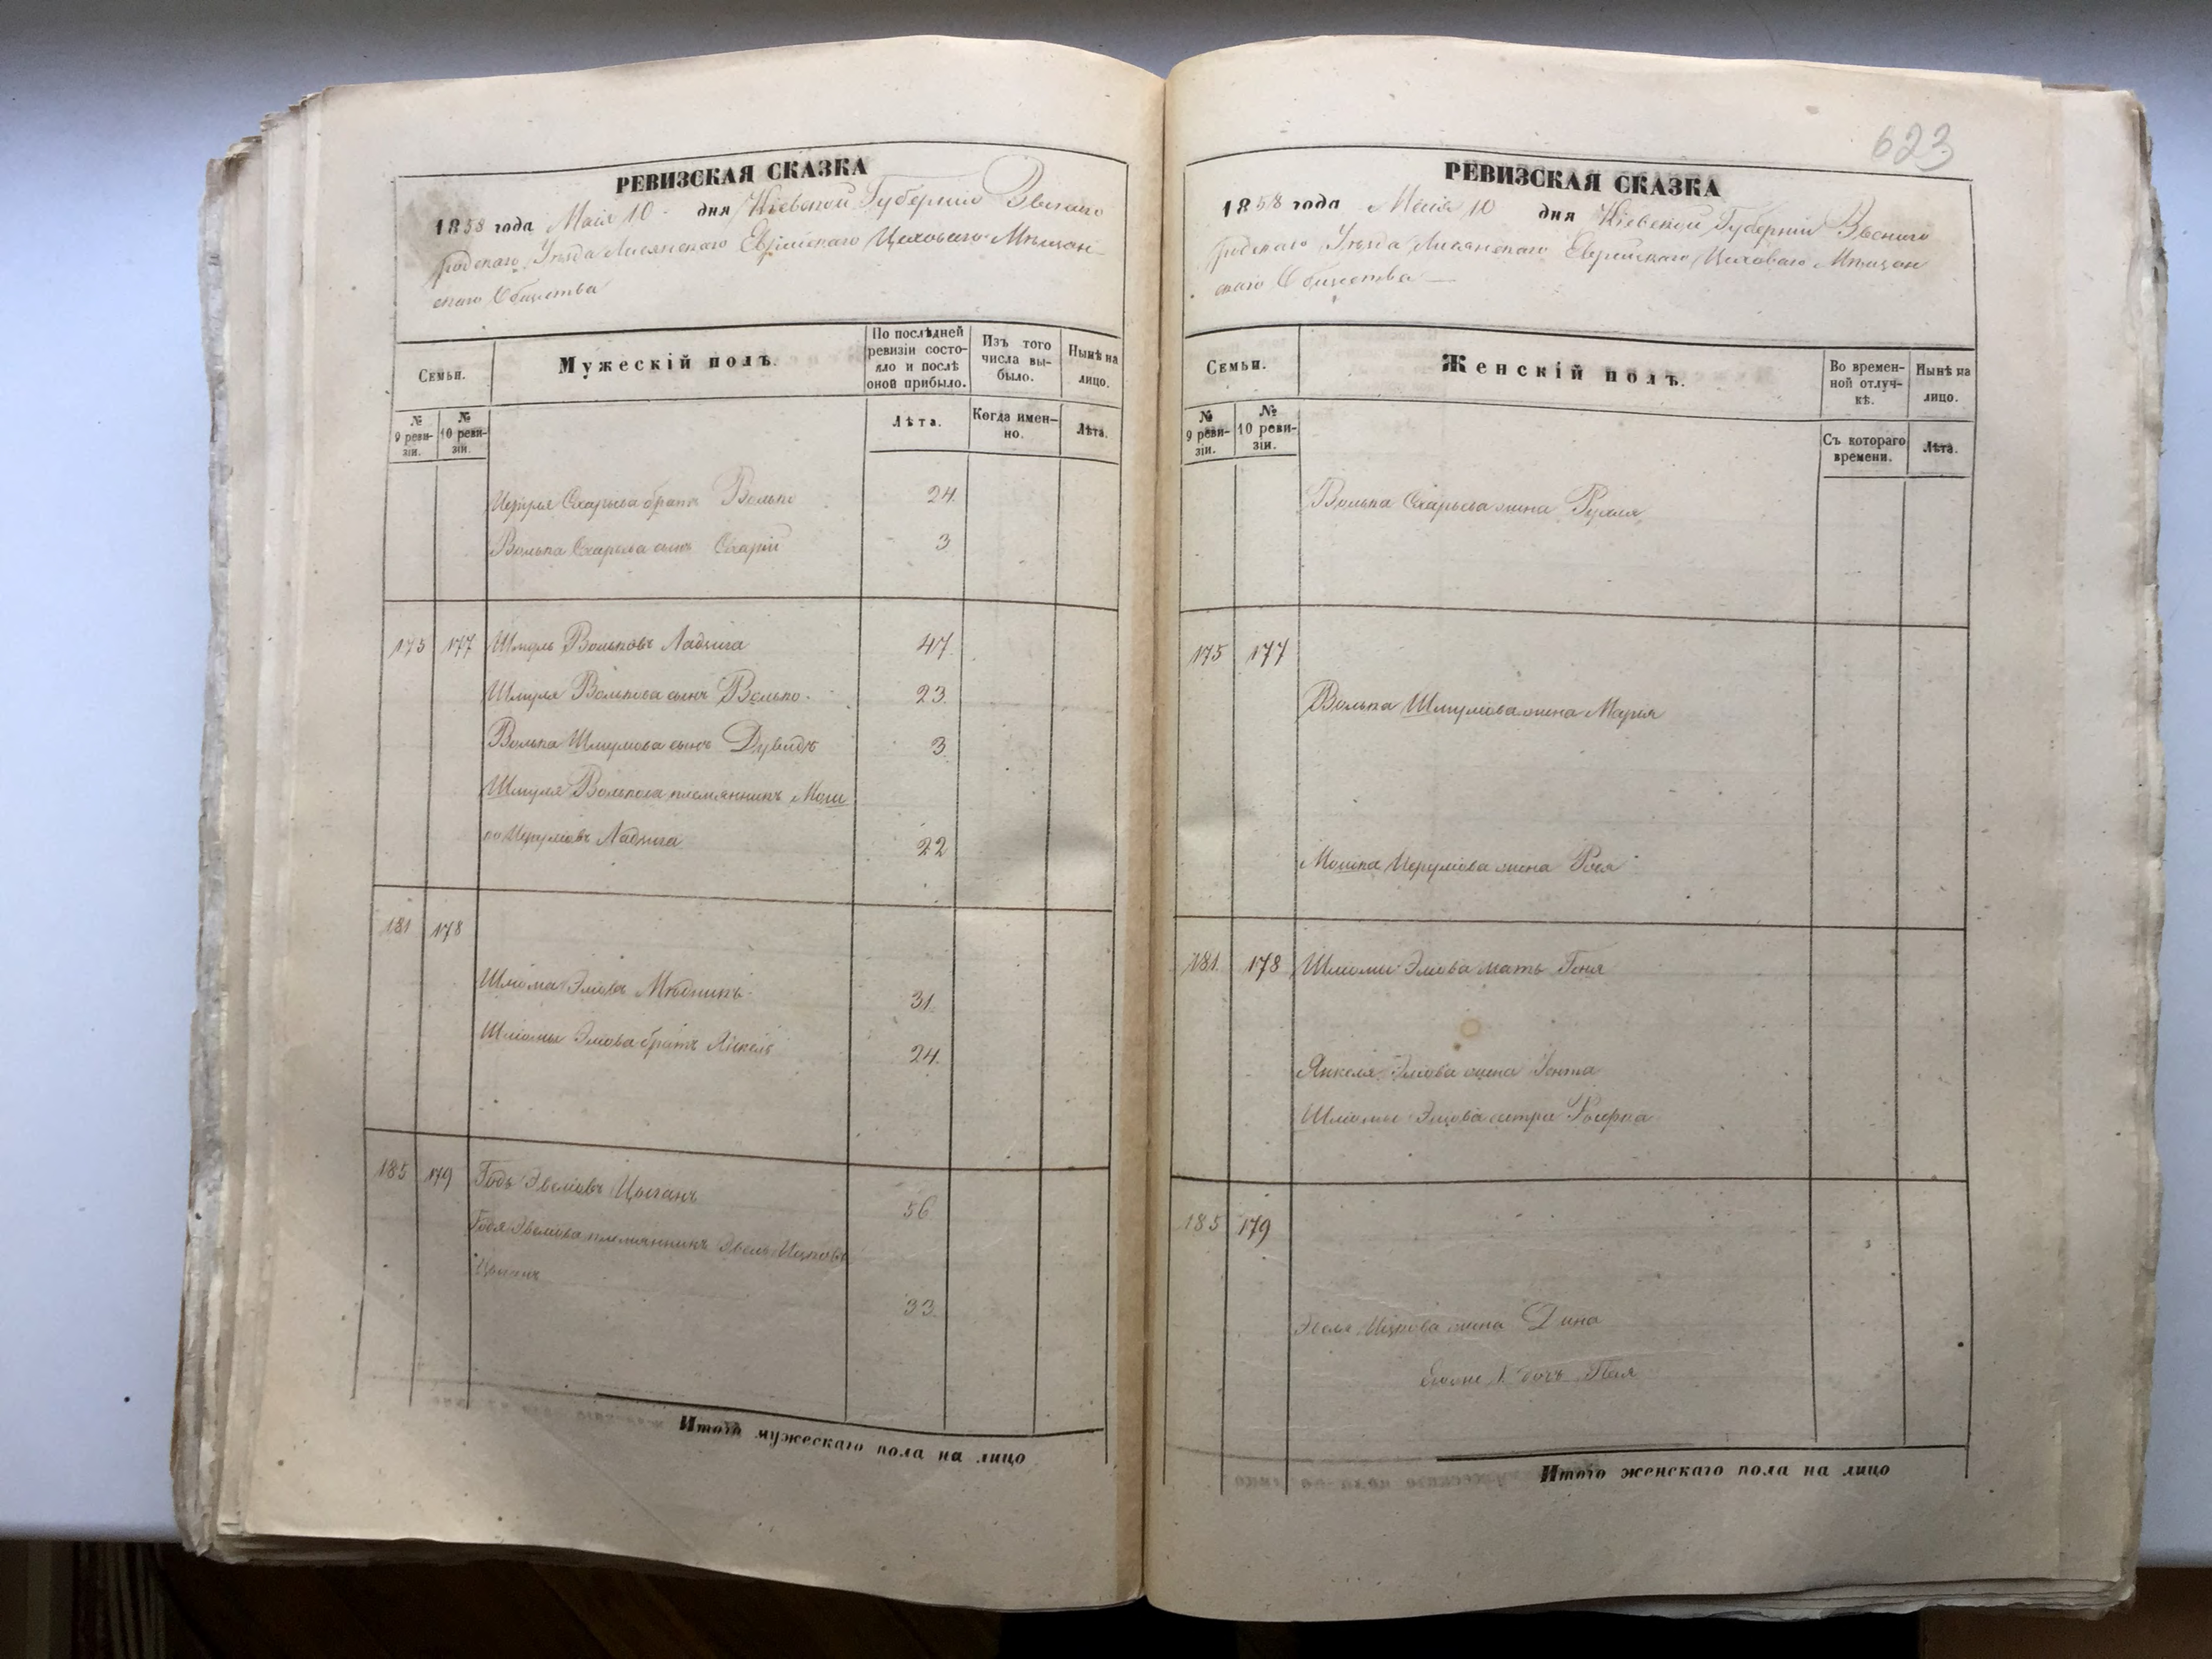 РЕВИЗСКАЯ СКАЗКА
1858 года Маія 10 дня Кіевской Губерніи Звениго
родскаго Уѣзда Лисянскаго Еврейскаго Цеховаго Мѣщан
скаго Общества
Семьи.
Мужескій полъ.
По послѣдней ревизіи состояло и послѣ оной прибыло.
Изъ того числа выбыло.
Нынѣ на лицо.
№ 9 ревизіи.
№ 10 ревизіи.
Лѣта.
Когда именно.
Лѣта.
братъ Волько 24.
Волька сынъ 3
175 177 Шмуль Вольковъ 47.
Шмуля Волькова сынъ Волько 23.
Волька Шмулова сынъ Дувидъ 3
Шмуля Волькова племянникъ Мош
ко 22
181 178
Шлиома Элiовъ Мѣдникъ 31.
Шлиомы Элiова братъ Янкель 24.
185 179 Годь Эвелiовъ Цыганъ 56
Годя Эвелiова племянникъ Эвель Ицковъ
Цыганъ 33.
Итого мужескаго пола на лицо
623
РЕВИЗСКАЯ СКАЗКА
1858 года Маія 10 дня Кіевской Губерніи Звениго
родскаго Уѣзда Лисянскаго Еврейскаго Цеховаго Мѣщан
скаго Общества
Семьи.
Женскій полъ.
Во временной отлучкѣ.
Нынѣ на лицо.
№ 9 ревизіи.
№ 10 ревизіи.
Съ котораго времени.
Лѣта.
Волька жена Рухля
175 177
Волька Шмулова жена Марія
Мошка жена
181. 178 Шлиомы Элiова мать Геня
Янкеля Элiова жена
Шлиомы Элiова сестра
185 179
Эвеля Ицкова жена Дина
дочь
Итого женскаго пола на лицо